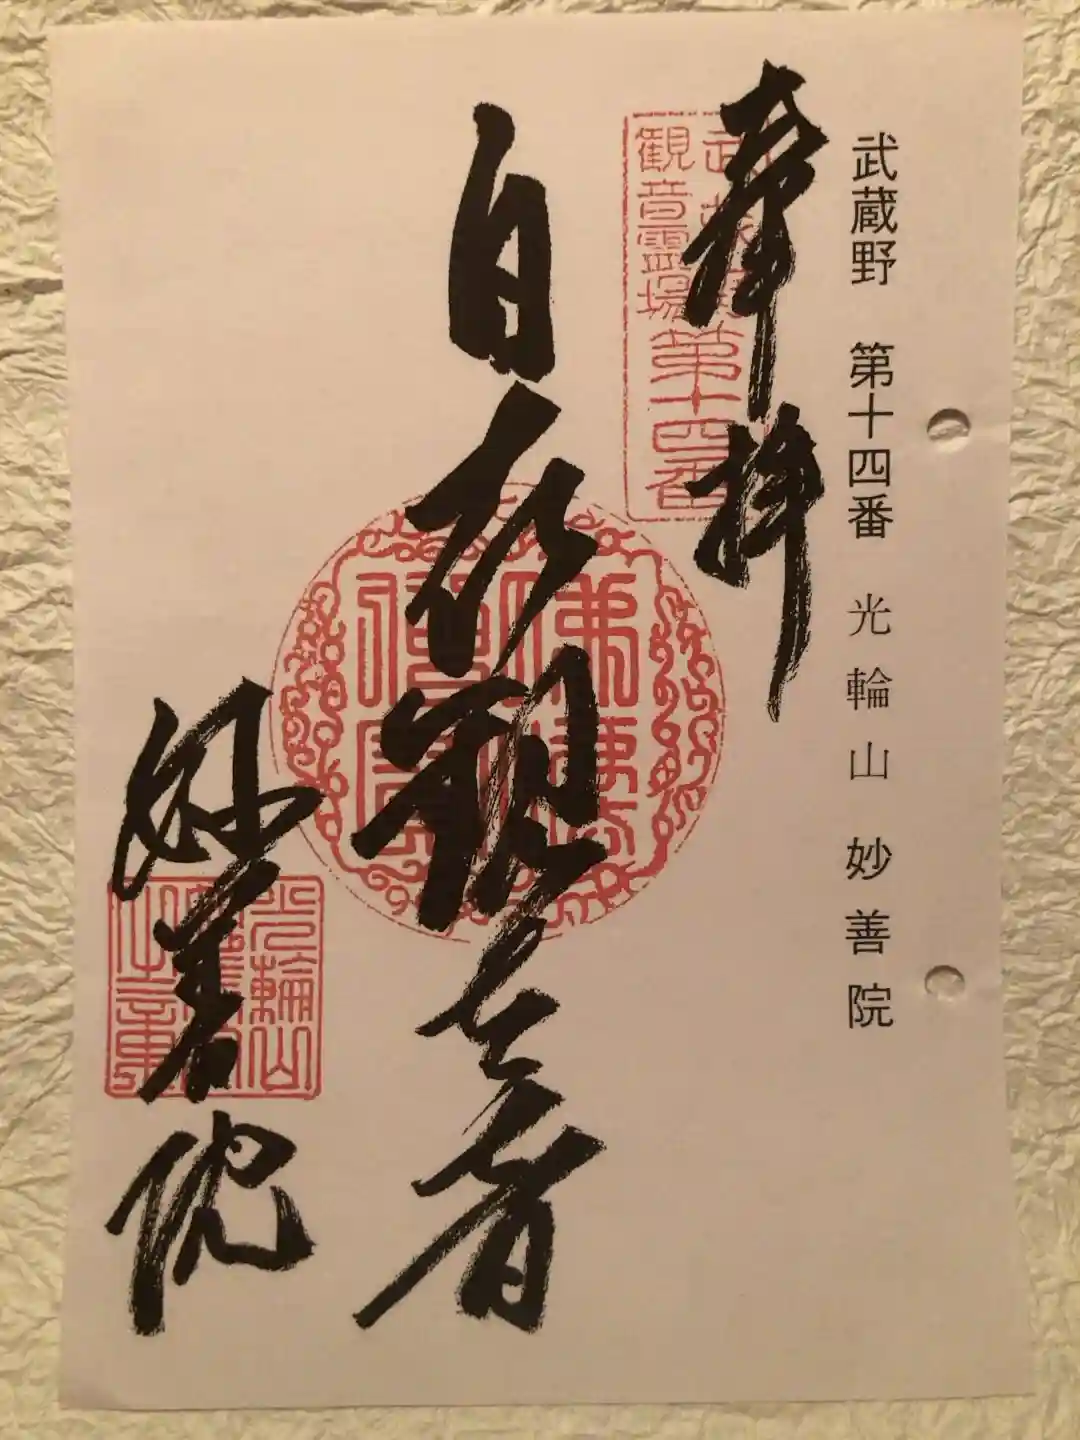 武蔵野 第十四番 光輪山 妙善院
奉拝
武蔵野
観音霊場
第十四番
白衣観世音
妙善院
光輪山